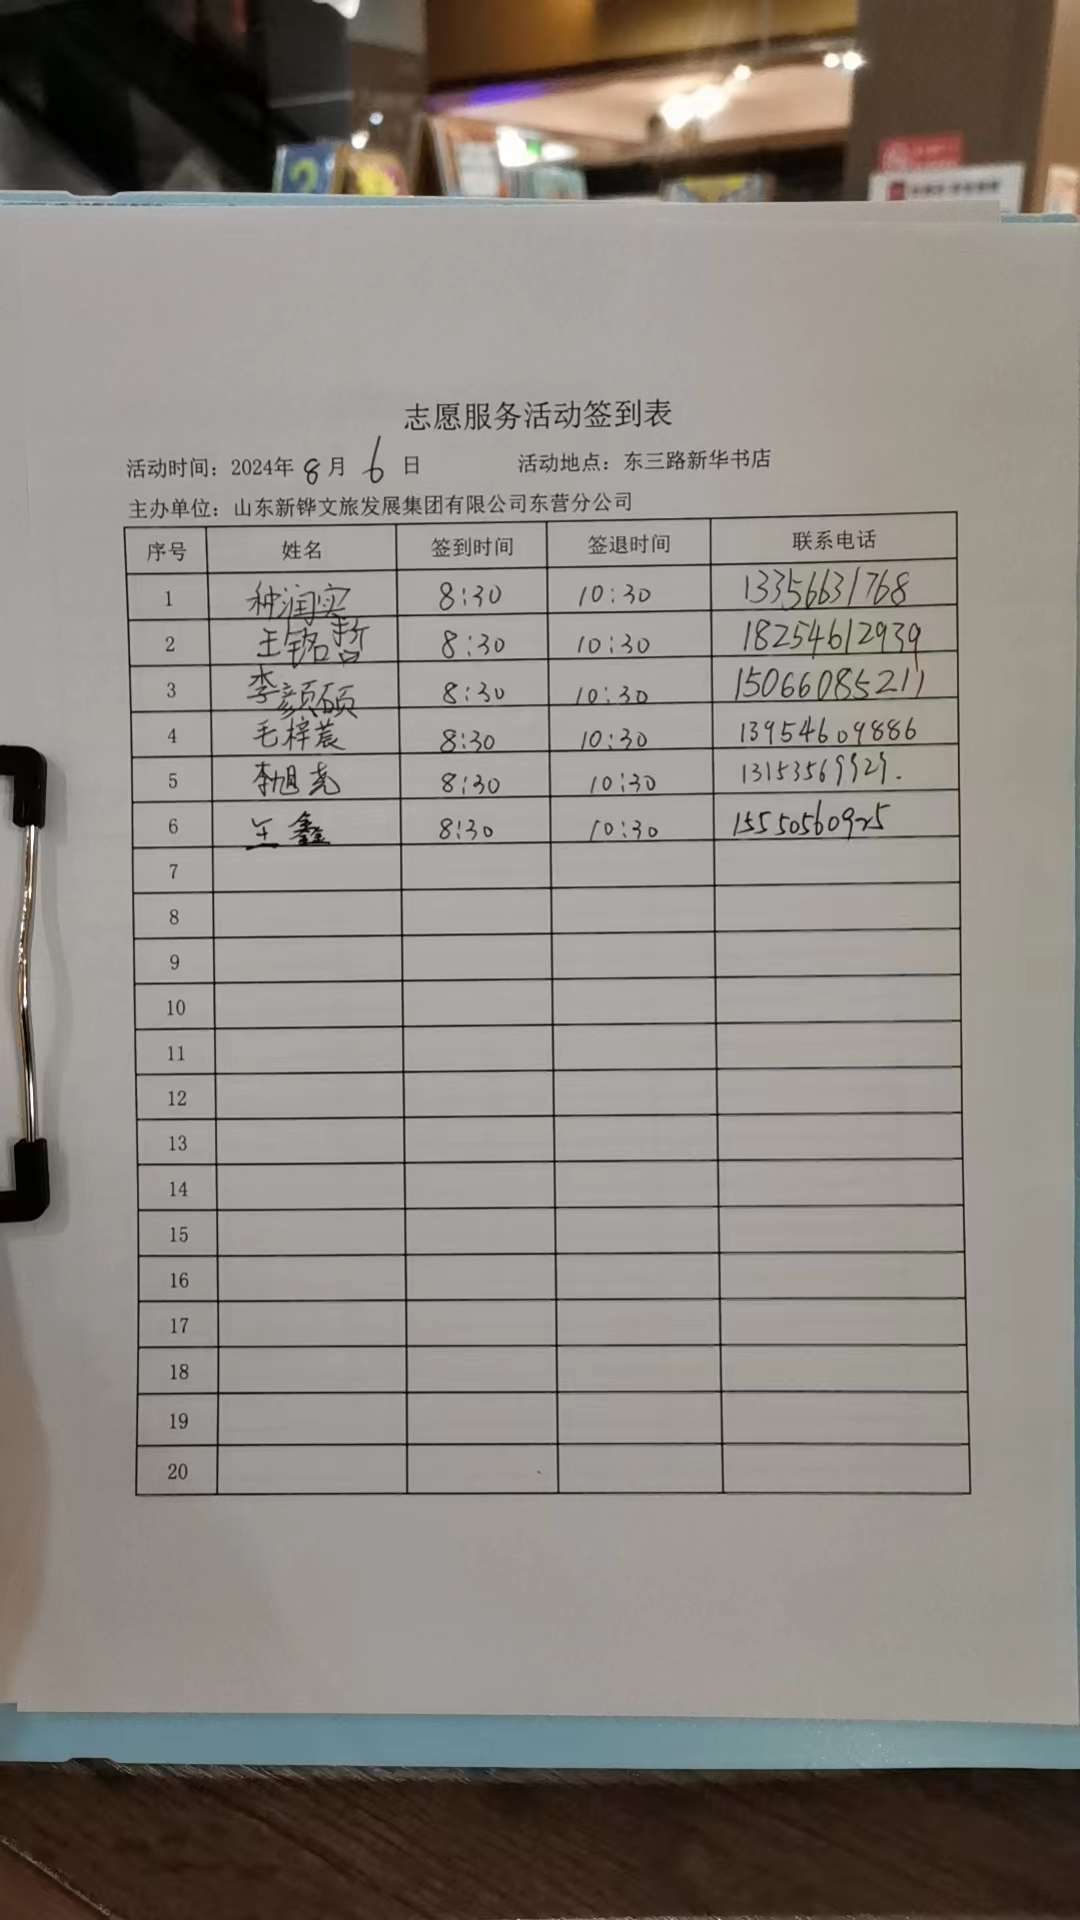 志愿服务活动签到表
活动时间：2024年 8 月 6 日 活动地点：东三路新华书店
主办单位：山东新铧文旅发展集团有限公司东营分公司
序号 姓名 签到时间 签退时间 联系电话
1 种润实 8:30 10:30 13356631768
2 王铭哲 8:30 10:30 18254612939
3 李颜硕 8:30 10:30 15066085211
4 毛梓萁 8:30 10:30 13954609886
5 李旭尧 8:30 10:30 13153569929.
6 王鑫 8:30 10:30 15550560925
7
8
9
10
11
12
13
14
15
16
17
18
19
20